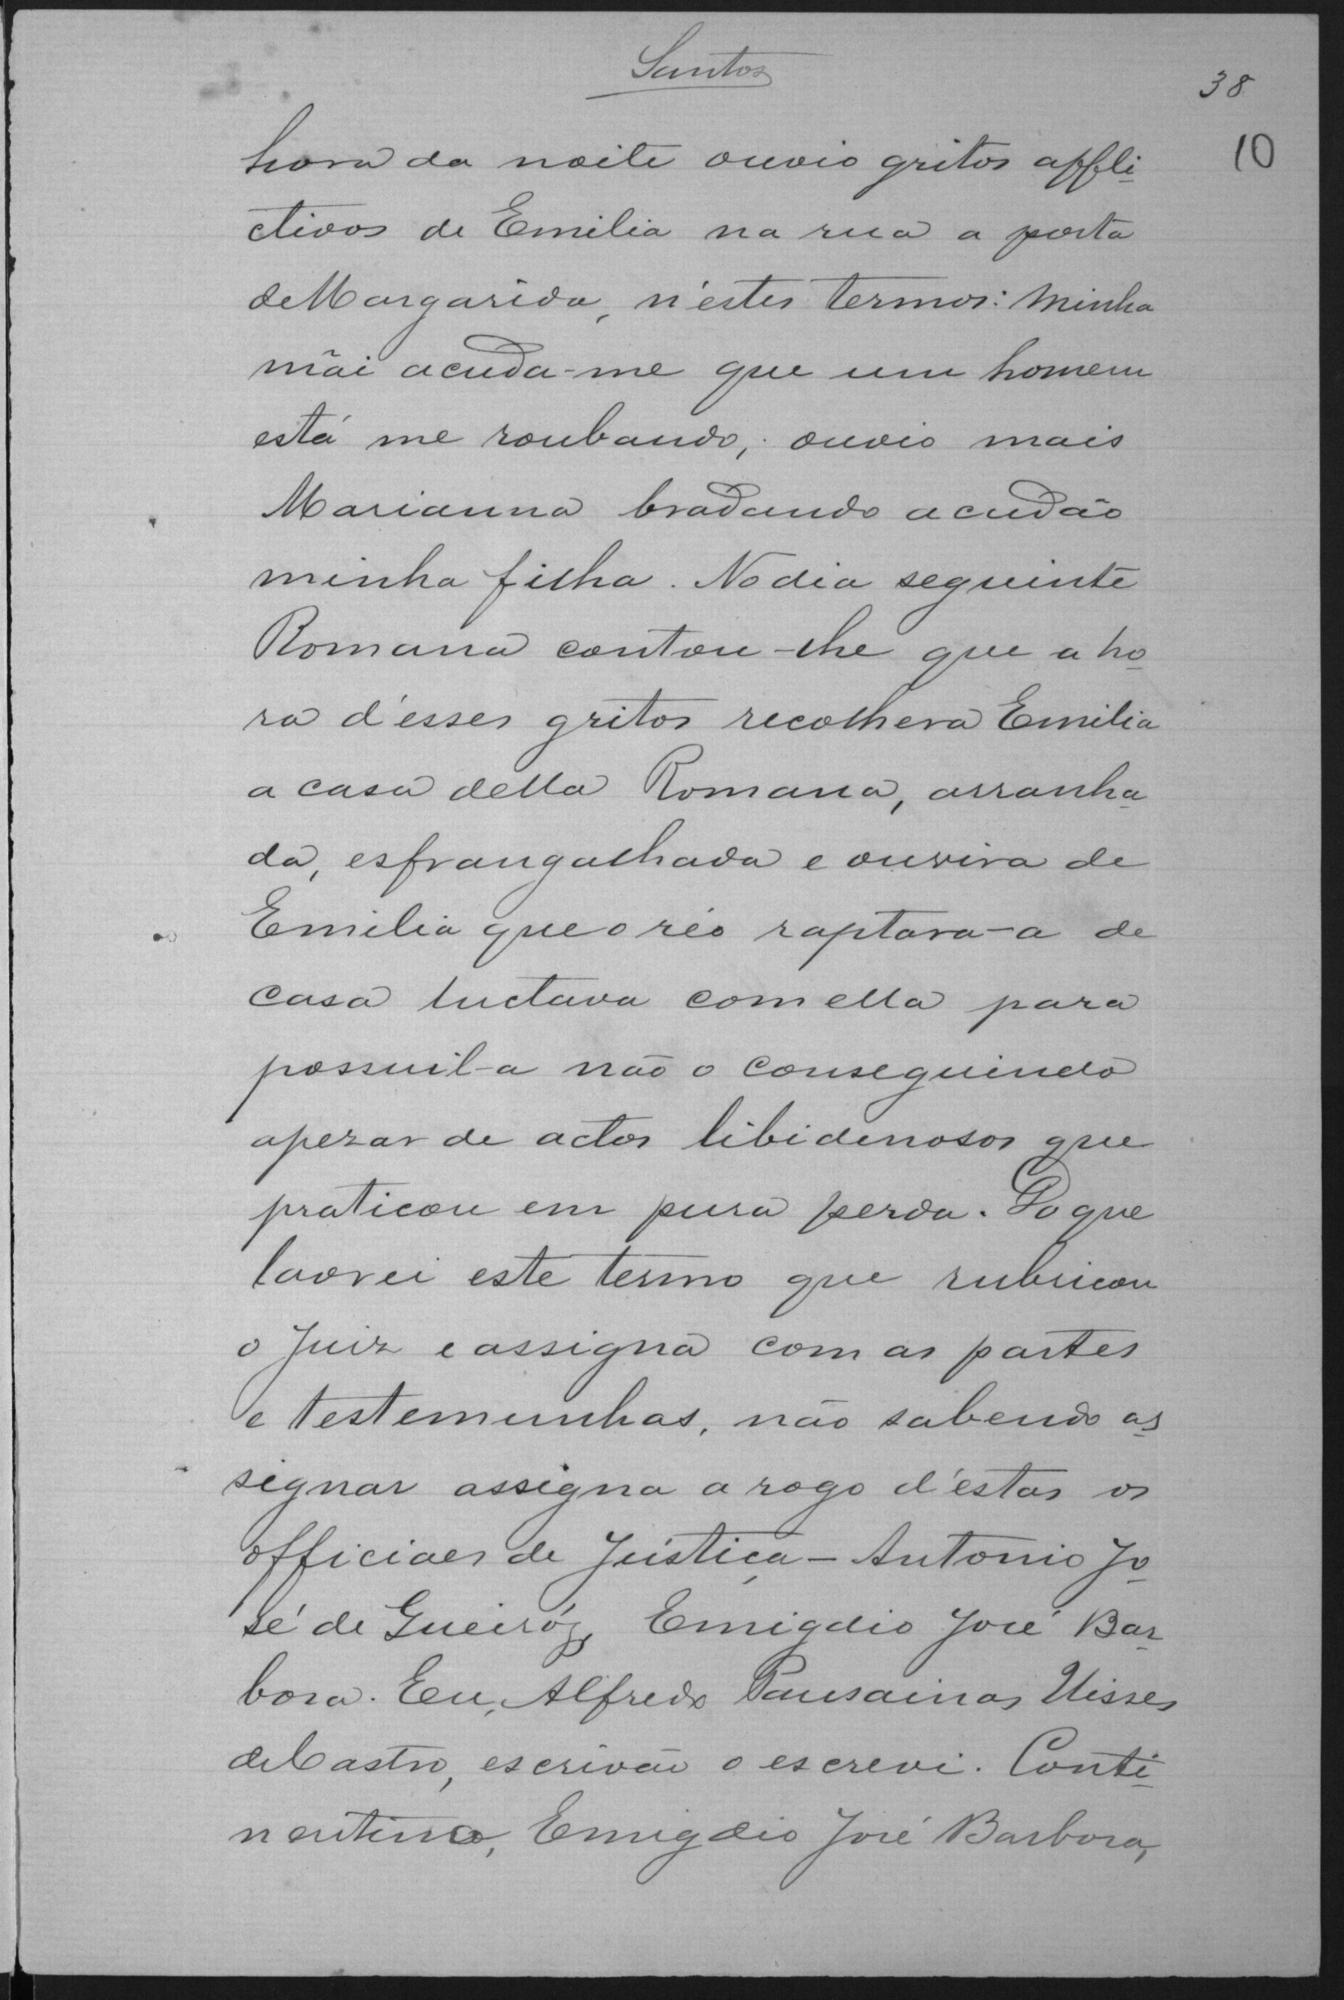 Santos
38
10
hora da noite ouvio gritos affli-
ctivos de Emilia na rua a porta
de Margarida, n'estes termos: Minha
mãi acuda-me que um homem
está me roubando, ouvio mais
Marianna bradando acudão
minha filha. No dia seguinte
Romana contou-lhe que a ho-
ra d'esses gritos recolhera Emilia
a casa della Romana, arranha-
da, esfrangalhada e ouvira de
Emilia que o réo raptara-a de
casa luctava com ella para
possuil-a não o conseguindo
apezar de actos libidenosos que
praticou em pura perda. Do que
lavrei este termo que rubricou
o Juiz e assigna com as partes
e testemunhas, não sabendo as-
signar assigna a rogo d'estas os
officiaes de Justiça - Antonio Jo-
sé de Gueiróz, Emigdio José Bar-
bosa. Eu, Alfredo Pausainas Ulisses
de Castro, escrivão o escrevi. Conti-
nentino, Emigdio José Barbosa,